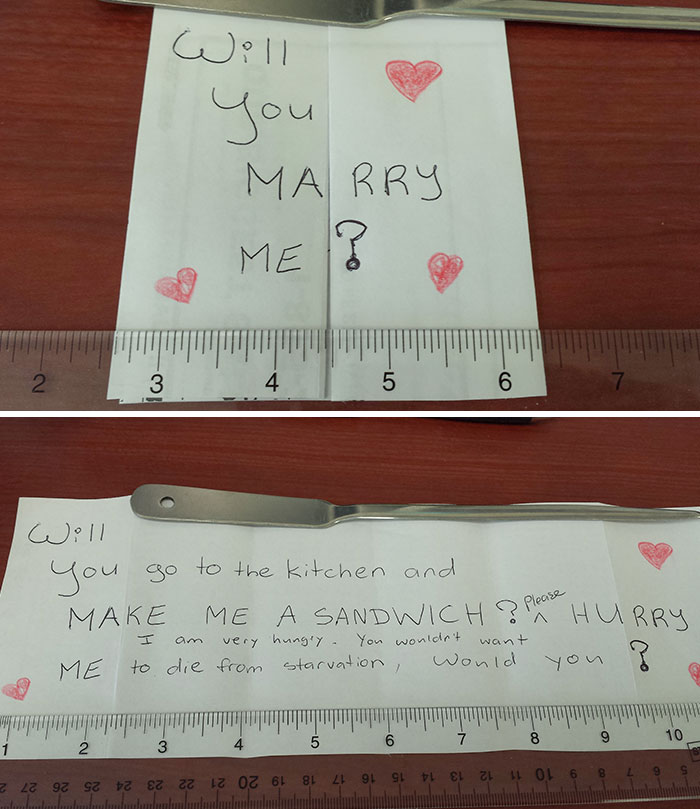 Will
You
MARRY
ME ?
2 3 4 5 6 7
Will
You go to the kitchen and
MAKE ME A SANDWICH ? Please ^ HURRY
I am very hungry. You wouldn't want
ME to die from starvation, would you ?
1 2 3 4 5 6 7 8 9 10
27 26 25 24 23 22 21 20 19 18 17 16 15 14 13 12 11 10 9 8 7 6 5